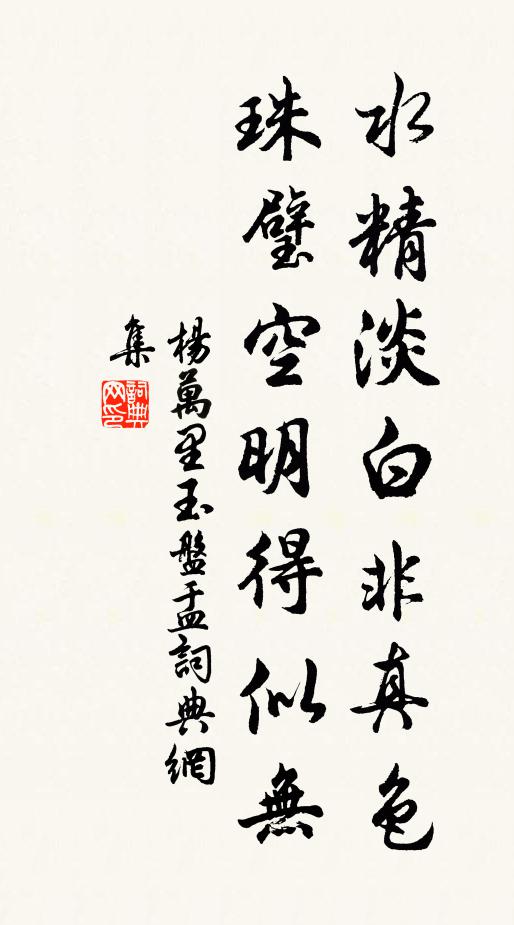 水精淡白非真色
珠璧空明得似無
楊萬里玉盤盂詞典網
集
詞典
网印